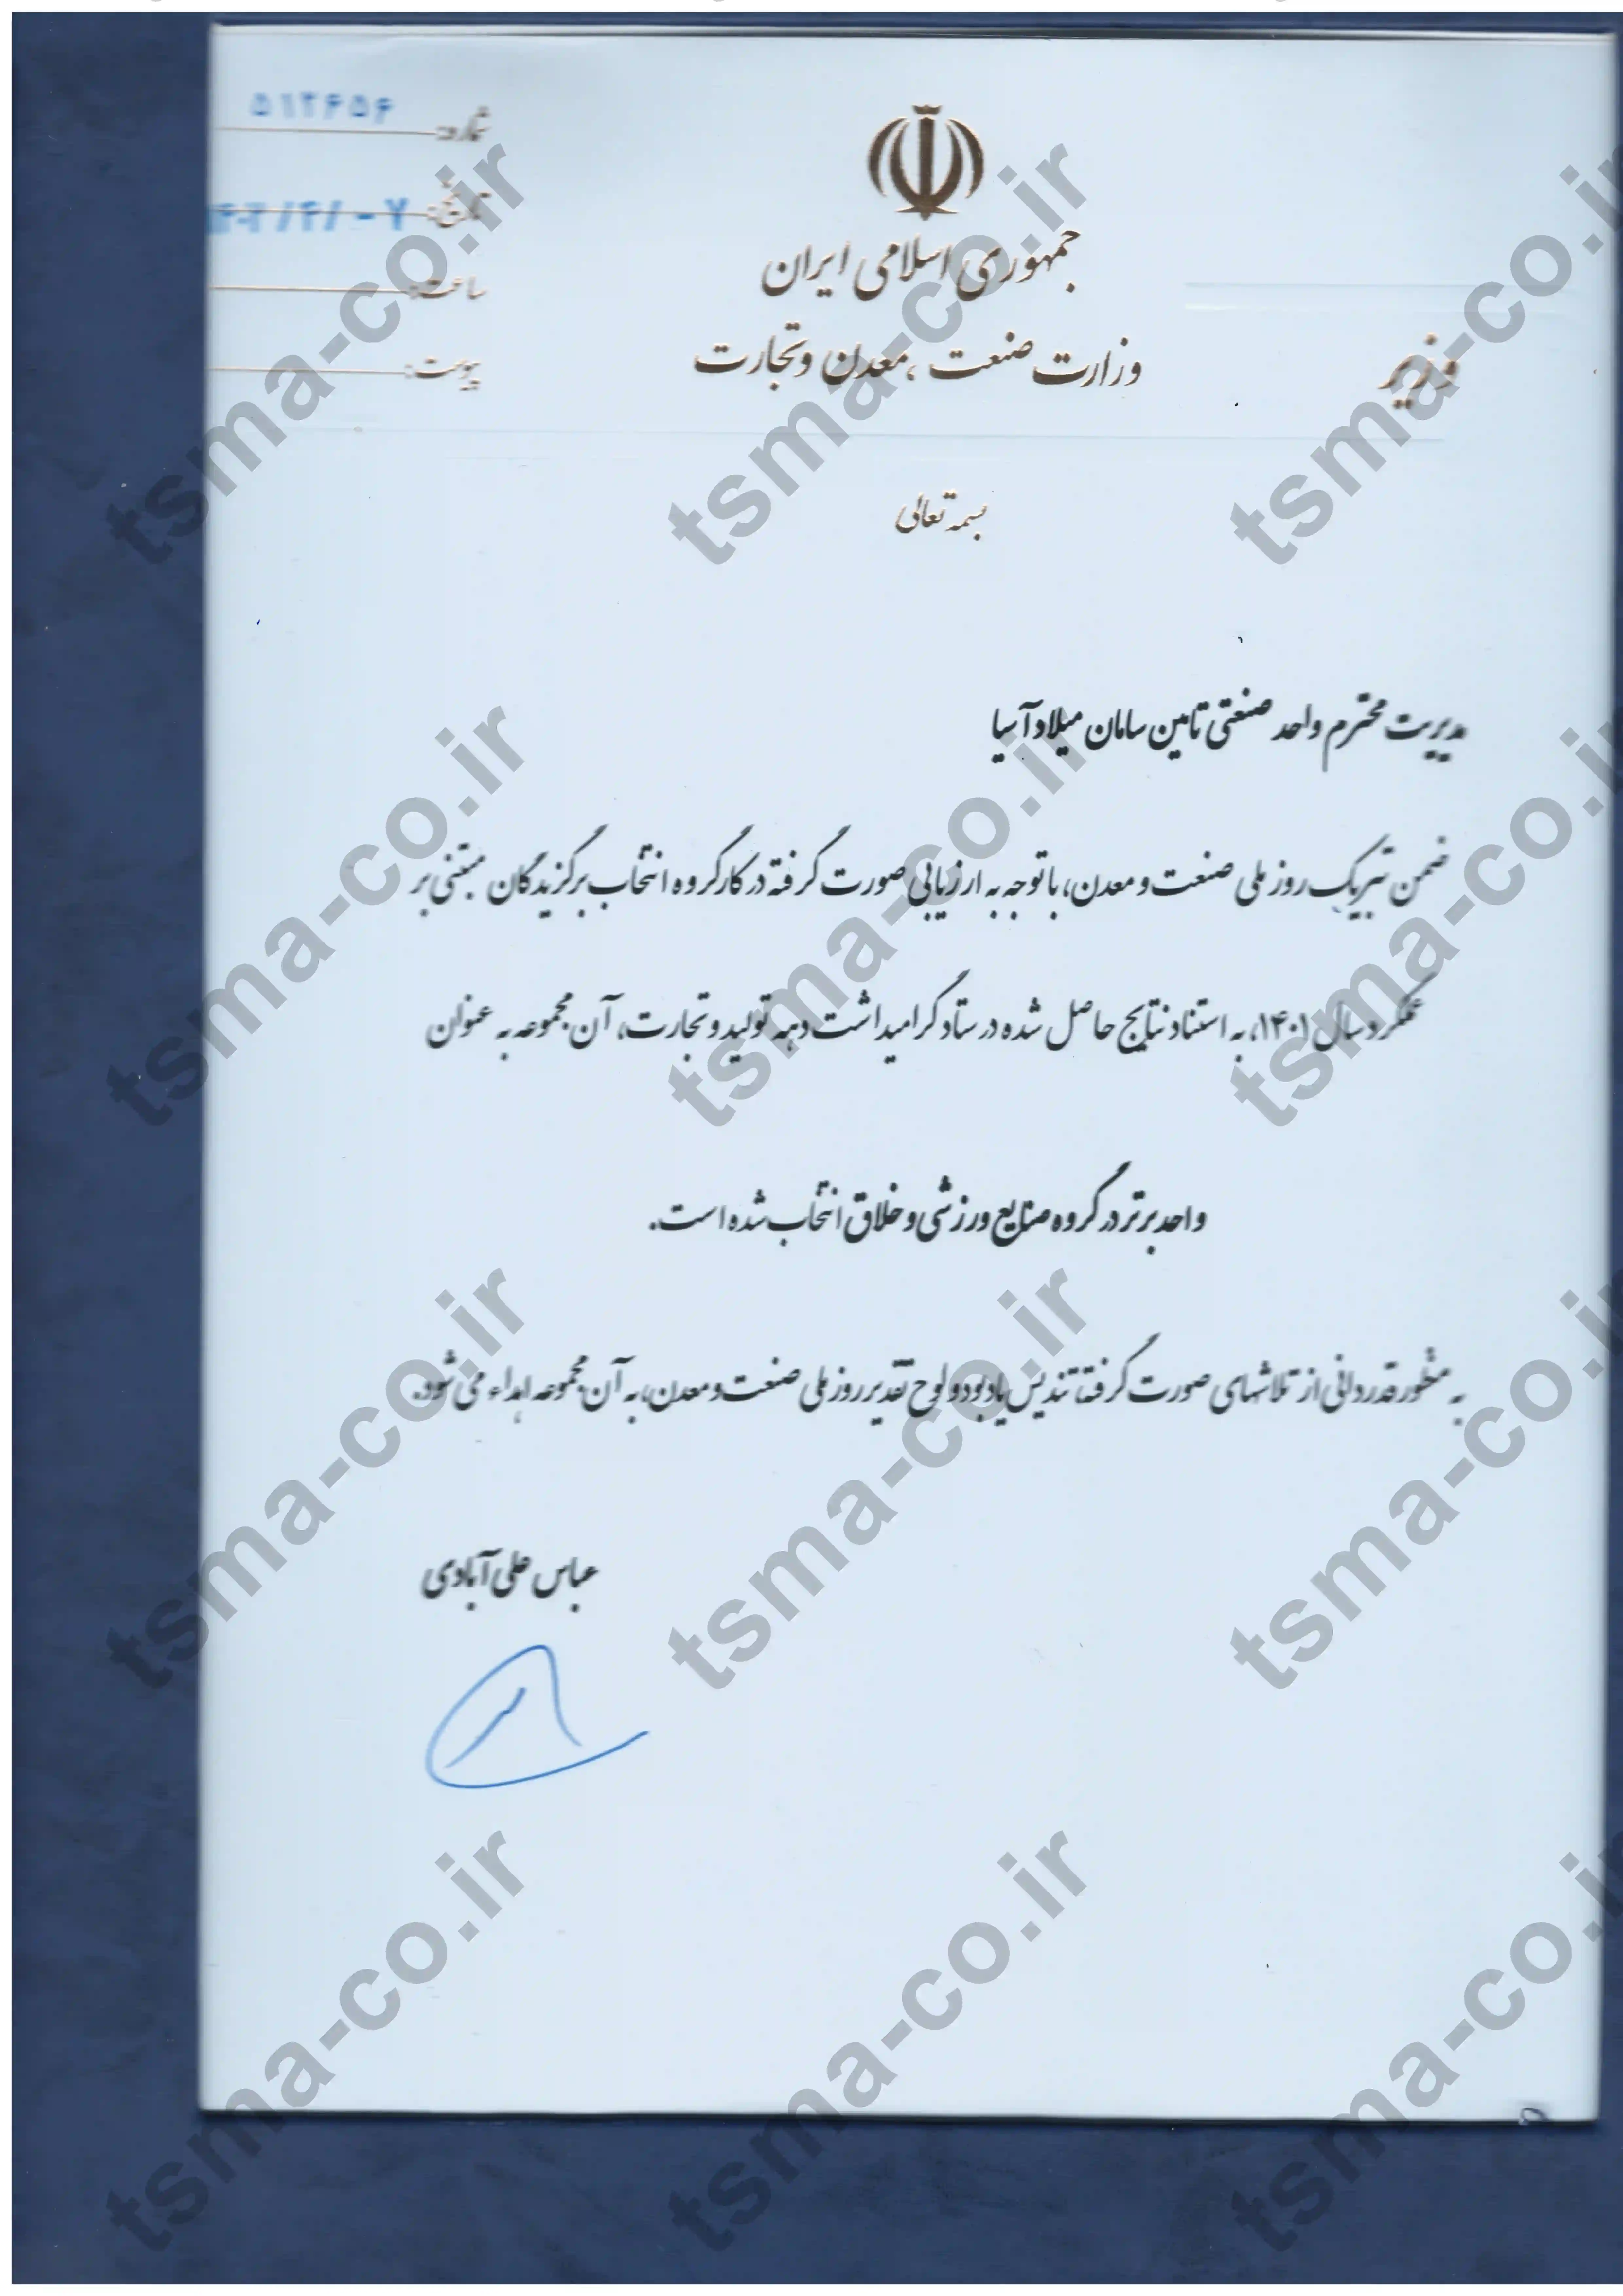 شماره:
تاریخ:
ساعت:
پیوست:
جمهوری اسلامی ایران
وزارت صنعت، معدن و تجارت
وزیر
بسمه تعالی
مدیریت محترم واحد صنعتی تامین سامان میلاد آسیا
ضمن تبریک روز ملی صنعت و معدن، با توجه به ارزیابی صورت گرفته در کارگروه انتخاب برگزیدگان مبتنی بر
عملکرد سال ۱۴۰۱، به استناد نتایج حاصل شده در ستاد گرامیداشت دهه تولید و تجارت، آن مجموعه به عنوان
واحد برتر در گروه صنایع ورزشی و خلاق انتخاب شده است.
به منظور قدردانی از تلاشهای صورت گرفته تندیس یادبود و لوح تقدیر روز ملی صنعت و معدن، به آن مجموعه اهداء می شود.
عباس علی آبادی
tsma-co.ir